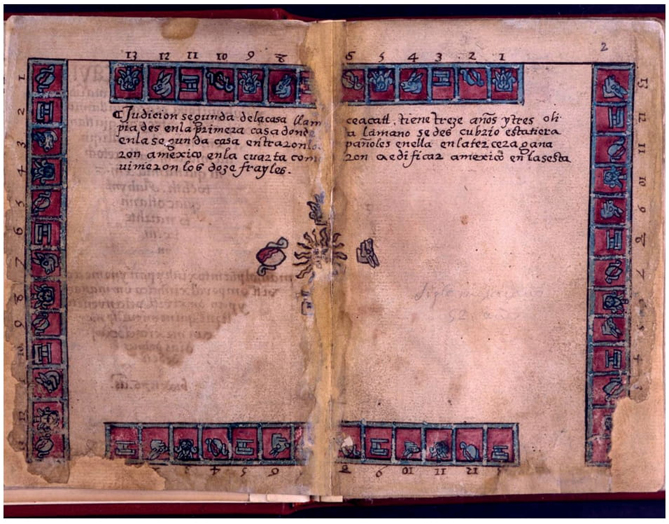 2
13 12 11 10 9 8 6 5 4 3 2 1
Judicion segunda dela casa llam ceacatl. tiene treze años y tres oli
pia des en la primera casa donde a lamano se des cubrio esta tiera
en la segunda casa entraron lo pañoles en ella en la tercera gana
ron a mexico en la cuarta com ron a edificar a mexico en la sesta
vinieron los doze frayles.
1
2
3
4
5
6
7
8
9
10
13
11
10
9
8
7
3 4 5 6 8 9 10 11 12